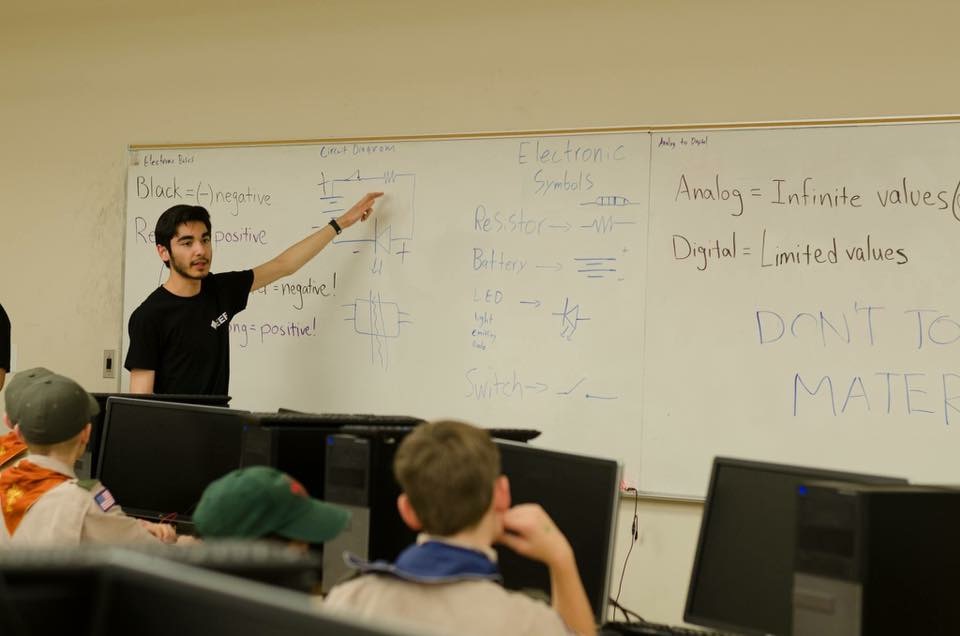 Electronic Basics
Black = (-) negative
positive
= negative!
= positive!
Circuit Diagram
+
-
-
+
Electronic
Symbols
Resistor →
Battery →
+
-
LED →
light
Switch →
Analog to Digital
Analog = Infinite values (
Digital = Limited values
DON'T TO
MATER